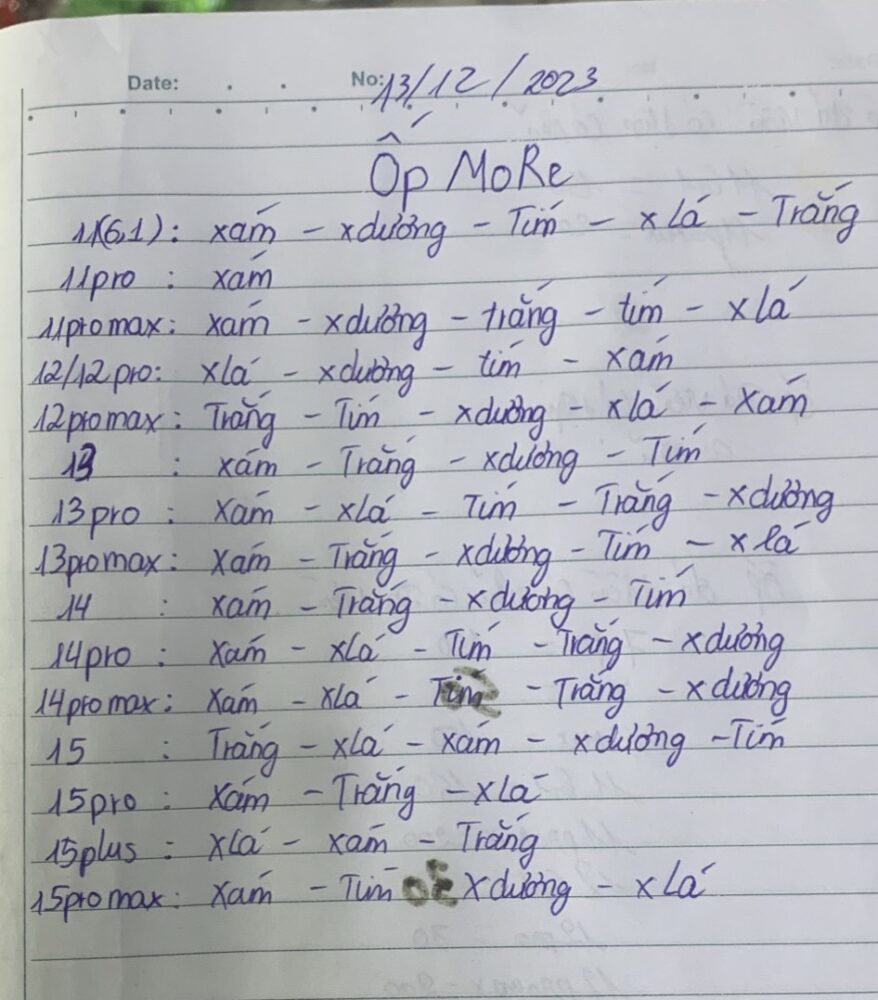 Date: . . No: 13/12/2023
Ốp MoRe
11(6,1): xám - xdương - Tím - x lá - Trắng
11pro : xám
11promax: xám - xdương - trắng - tím - x lá
12/12pro: xlá - xdương - tím - xám
12promax: Trắng - Tím - xdương - xlá - Xám
13 : xám - Trắng - xdương - Tím
13pro : Xám - xlá - Tím - Trắng - xdương
13promax: Xám - Trắng - xdương - Tím - x lá
14 : xám - Trắng - xdương - Tím
14pro : Xám - xLá - Tím - Trắng - xdương
14promax: Xám - xLá - Tím - Trắng - x dương
15 : Trắng - xlá - xám - xdương - Tím
15pro : Xám - Trắng - xLá
15plus : xlá - xám - Trắng
15promax: Xám - Tím xdương - x Lá